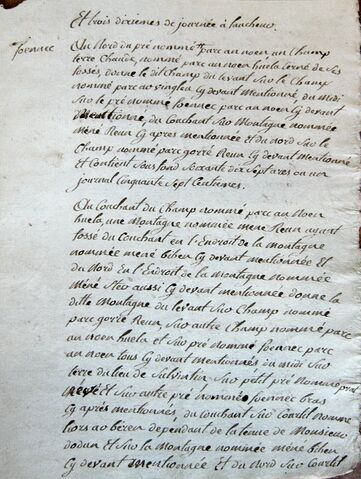 Et trois dixiemes de journée à faucheur.
foennec
Au Nord du pré nommé parc an noen un Champ
terre Chaude, nommé parc an noen huela cerné de ses
fossés, donne le dit Champ du levant Sur le Champ
nommé parc ar Cy devant Mentionné, du Midi
Sur le pré nommé foennec parc an noen Cy devant
Mentionné, du Couchant Sur Montagne nommée
méné Reun Cy après mentionnée Et du nord Sur le
Champ nommé parc gorré Reun Cy devant Mentionné
Et Contient Sous fond Soixante dix Sept ares ou un
journal Cinquante Sept Centiemes.
Au Couchant du Champ nommé parc an Noen
huela, une Montagne nommée méné Reun ayant
fossé du Couchant en l'Endroit de la montagne
nommée méné bihen Cy devant mentionnée Et
du Nord En l'Endroit de la montagne nommée
Méné aussi Cy devant mentionnée donne la
ditte Montagne du levant Sur Champ nommé
parc gorré Reun, Sur autre Champ nommé parc
an noen huela Et Sur pré nommé foennec parc
an noen tous Cy devant mentionnés du midi Sur
terre du lieu de Sur petit pré nommé
Et Sur autre pré nommé foennec bras
Cy après mentionnés, du Couchant Sur Courtil nommé
liors ar dépendant de la tenue de Monsieur
Et Sur la Montagne nommée méné bihen
Cy devant Mentionnée Et du Nord Sur Courtil